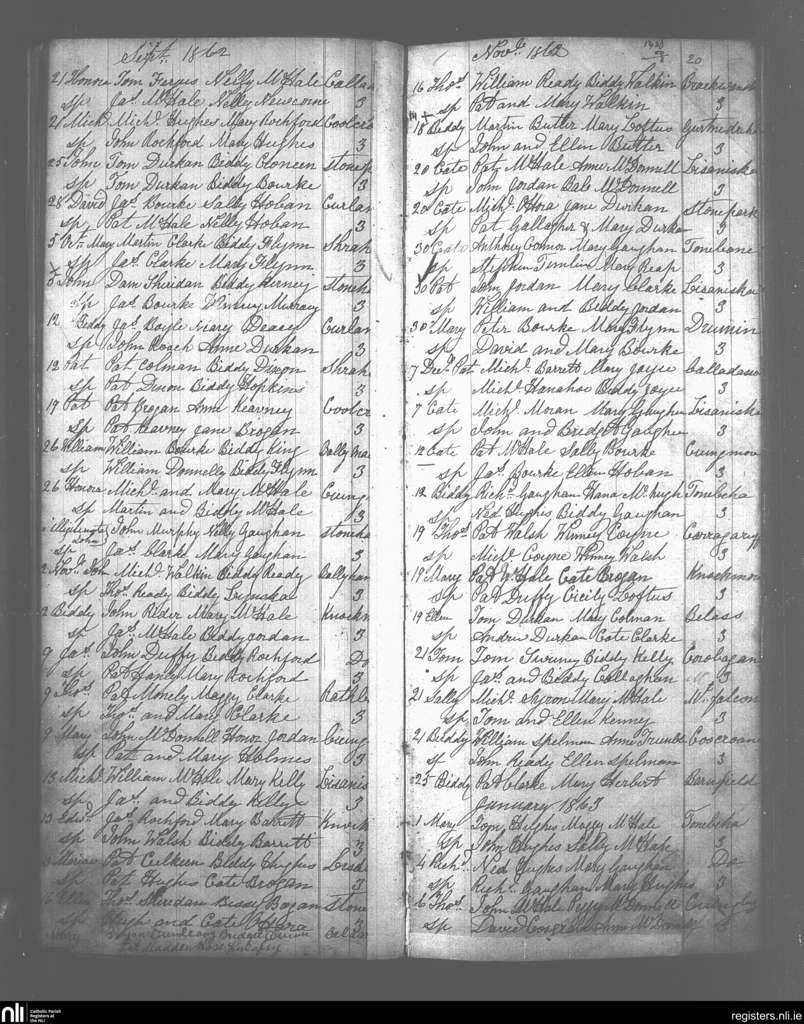 Sept. 1862
21 Honora Tom Fergus Nelly McHale Calla
sp Jas. McHale Nelly Newcome 3
21 Michl Michl Hughes Mary Rochford Coolc
sp John Rochford Mary Hughes 3
25 John Tom Durkan Biddy Cloneen Stonep
sp Tom Durkan Biddy Bourke 3
28 David Jas. Bourke Sally Hoban Curlan
sp Pat McHale Nelly Hoban 3
5 Octr. Mary Martin Clarke Biddy Flynn Shrah
sp Jas. Clarke Mary Flynn 3
5 John Dam Sheridan Biddy Kerney Stoneh
sp Jas. Bourke Winney Murray 3
12 Biddy Jas. Boyle Mary Deacy Curlan
sp John Roach Anne Durkan 3
12 Pat Pat Colman Biddy Dixon Shrah
sp Pat Dixon Biddy Hopkins 3
19 Pat Pat Brogan Ann Kearney Coolcr
sp Pat Kearney Jane Brogan 3
26 William William Bourke Biddy King Ballyma
sp William Donnelly Biddy Flynn 3
26 Honora Michl. and Mary McHale Cuing
sp Martin and Biddy McHale 3
illegitimate John John Murphy Nelly Gaughan Stoneha
sp Jas. Clarke Mary Gaughan 3
2 Novr. Michl. Walkin Biddy Ready Ballyhan
sp Thos. Ready Biddy 3
2 Biddy John Rider Mary McHale Knockm
sp Jas. McHale Biddy Jordan 3
9 Jas. John Duffy Biddy Rochford Do
sp Pat Hanly Mary Rochford 3
9 Thos. Pat Monely Maggy Clarke Rathle
sp Thos. and Mary Clarke 3
9 Mary John McDonnell Honor Jordan Cuing
sp Pat and Mary Holmes 3
13 Michl. William McHale Mary Kelly Lisanis
sp Jas. and Biddy Kelly 3
13 Edwd. Jas. Rochford Mary Barrett Knock
sp John Walsh Biddy Barrett 3
Pat Culkeen Biddy Hughes
sp Pat Hughes Cate Brogan 3
16 Ellen Thos. Sheridan Biddy Bogan Stone
sp Hugh and Cate O'Hara
Mary Bridget
Pat Madden Rose
Novr. 1862 20
16 Thos. William Ready Biddy Walkin
sp Pat and Mary Walkin 3
18 Biddy Martin Butler Mary Loftus
sp John and Ellen Butler 3
20 Cate Pat McHale Anne McDonnell Lisaniska
sp John Jordan Bab McDonnell 3
20 Cate Michl. O'Hora Jane Durkan Stonepark
sp Pat Gallagher & Mary Durkan 3
30 Cate Anthony Connor Mary Gaughan Tonebane
sp Stephen Timlin Mary Reap 3
30 Pat John Jordan Mary Clarke Lisaniska
sp William and Biddy Jordan 3
30 Mary Peter Bourke Mary Flynn Drumin
sp David and Mary Bourke 3
7 Decr. Pat Michl. Barrett Mary Joyce Calladasan
sp Michl. Hanahoe Biddy Joyce 3
7 Cate Michl. Moran Mary Gaughen Lisaniska
sp John and Bridget Gaughen 3
12 Cate Pat McHale Sally Bourke Cuingmore
sp Jas. Bourke Ellen Hoban 3
12 Biddy Richd. Gaughan Hana McHugh Tonebeha
sp Ned Hughes Biddy Gaughan 3
19 Thos. Pat Walsh Winney Coyne Carragarry
sp Michl. Coyne Winney Walsh 3
19 Mary Pat McHale Cate Brogan Knockmore
sp Pat Duffy Cicily Loftus 3
19 Ellen Tom Durkan Mary Colman Belass
sp Andrew Durkan Cate Clarke 3
21 Tom Tom Sweeney Biddy Kelly Corobagan
sp Jas. and Biddy Callaghan 3
21 Sally Michl. Syron Mary McHale Mt. falcon
sp Tom and Ellen Kenney 3
21 Biddy William Spelman Anne Trimble
sp John Ready Ellen Spelman 3
25 Biddy Pat Clarke Mary Herbert Barnfield
January 1863
1 Mary Tom Hughes Maggy McHale Tonebeha
sp Tom Hughes Sally McHale 3
4 Richd. Ned Hughes Mary Gaughan Do
sp Richd. Gaughan Mary Hughes 3
6 Thos. John McHale Peggy McDonnell
sp David Anne McDonnell 3
nli Catholic Parish Registers at the NLI
registers.nli.ie